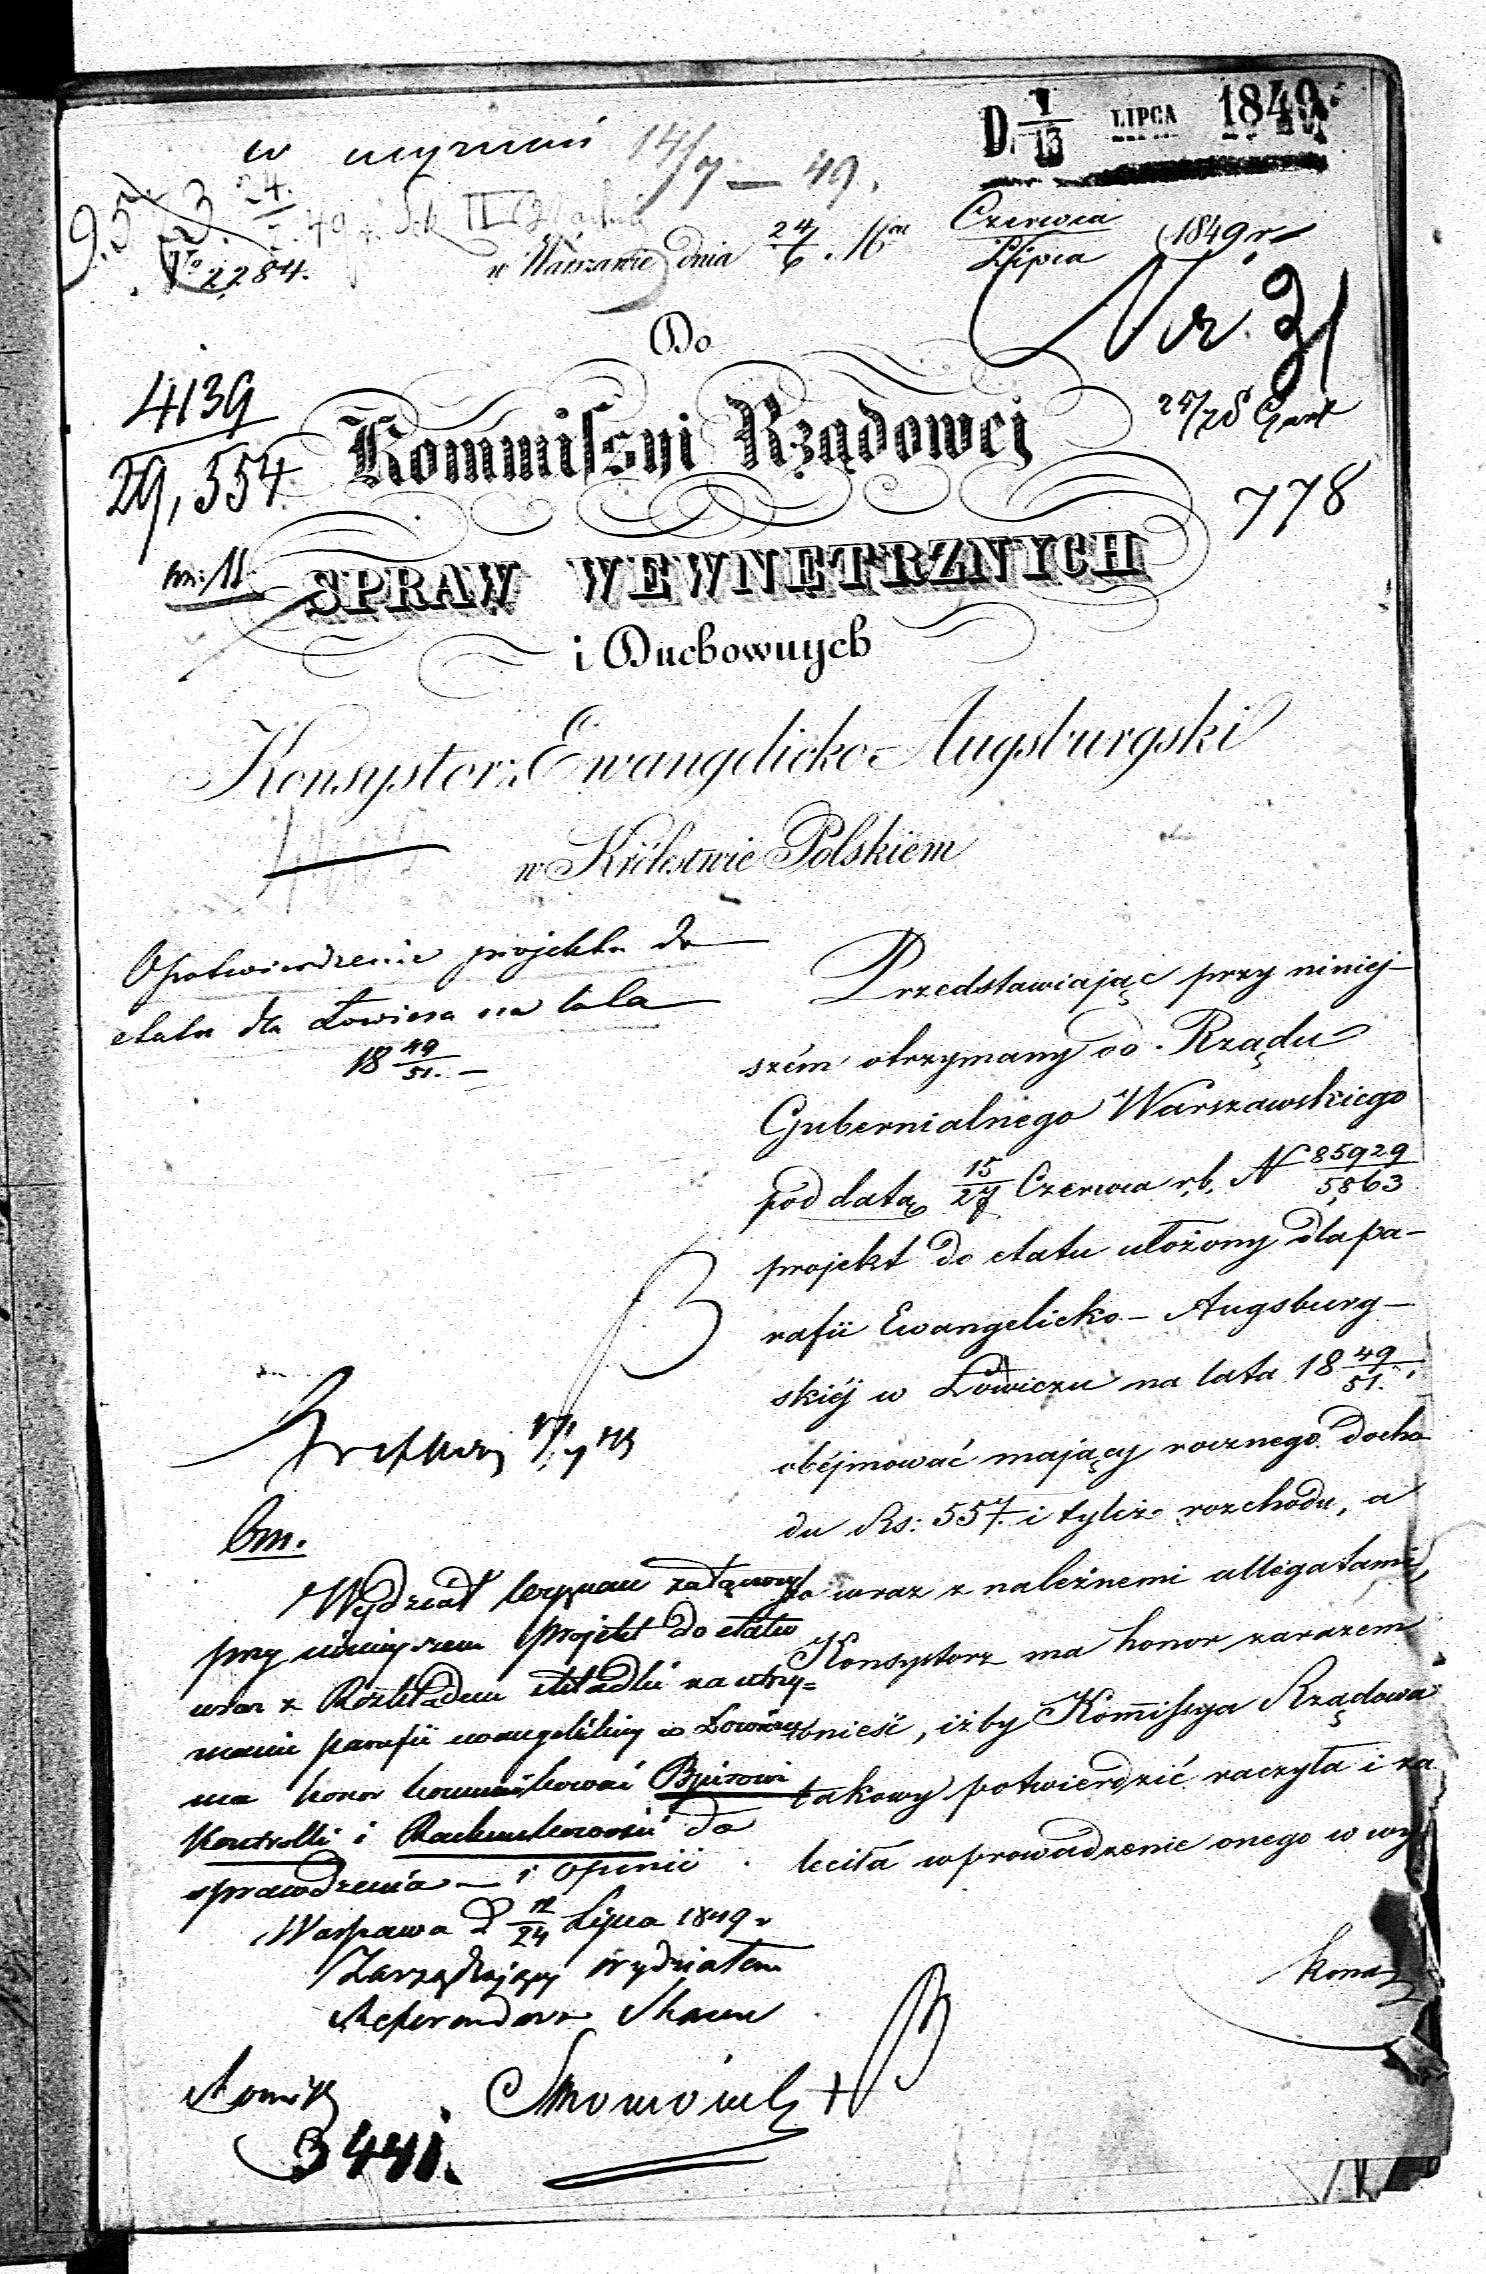 D. 1/13 LIPCA 1849
14/7 – 49.
No 2284.
w Warszawie dnia 24/6 Czerwca/Lipca 1849 r
Nr. 31
Do
4139
29,554
Kommissyi Rządowej
778
SPRAW WEWNĘTRZNYCH
i Duchownych
Konsystorz Ewangelicko-Augsburgski
w Królestwie Polskiem
O potwierdzenie projektu do
etatu dla Łowicza na lata
18 49/51. –
Przedstawiając przy niniej-
szém otrzymany od Rządu
Gubernialnego Warszawskiego
pod datą 15/27 Czerwca r.b. N 85929/5863
projekt do etatu ułożony dla pa-
rafii Ewangelicko-Augsburg-
skiéj w Łowiczu na lata 18 49/51.,
obéjmować mający rocznego docho
du Rs: 557. i tyleż rozchodu, a
to wraz z należnemi allegatami,
Konsystorz ma honor zarazem
wnieść, iżby Kommissya Rządowa
takowy potwierdzić raczyła i za
leciła wprowadzenie onego w wy
kona
Bm.
Wydział Wyznań załączony
przy niniejszem projekt do etatu
wraz z Rozkładem składki na utrzy=
manie parafii ewangelickiej w Łowiczu
ma honor kommunikować Biurowi
Kontrolli i Rachunkowości do
sprawdzenia – i opinii.
Warszawa d 12/24 Lipca 1849 r
Zarządzający Wydziałem
Referendarz Stanu
3441.